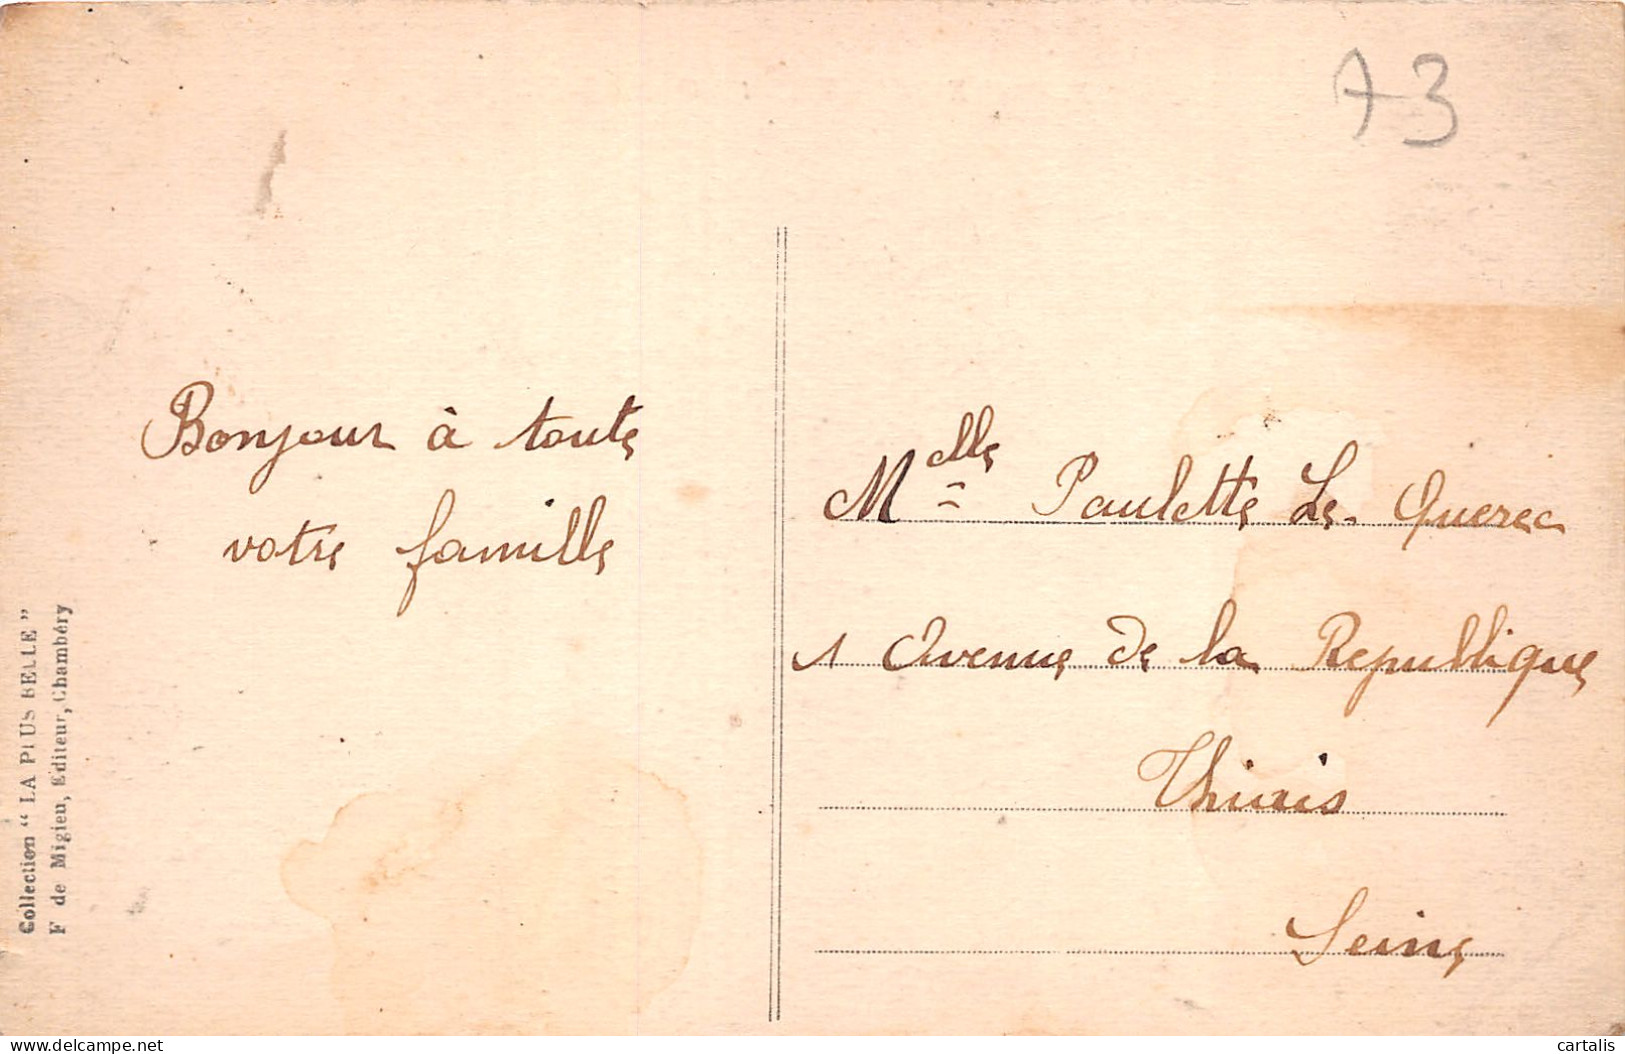 73
Bonjour à toute
votre famille
Melle Paulette Le Querec
1 Avenue de la Republique
Thiais
Seine
Collection “ LA PLUS BELLE ”
F de Migieu, Editeur, Chambéry
delcampe.net
cartalis